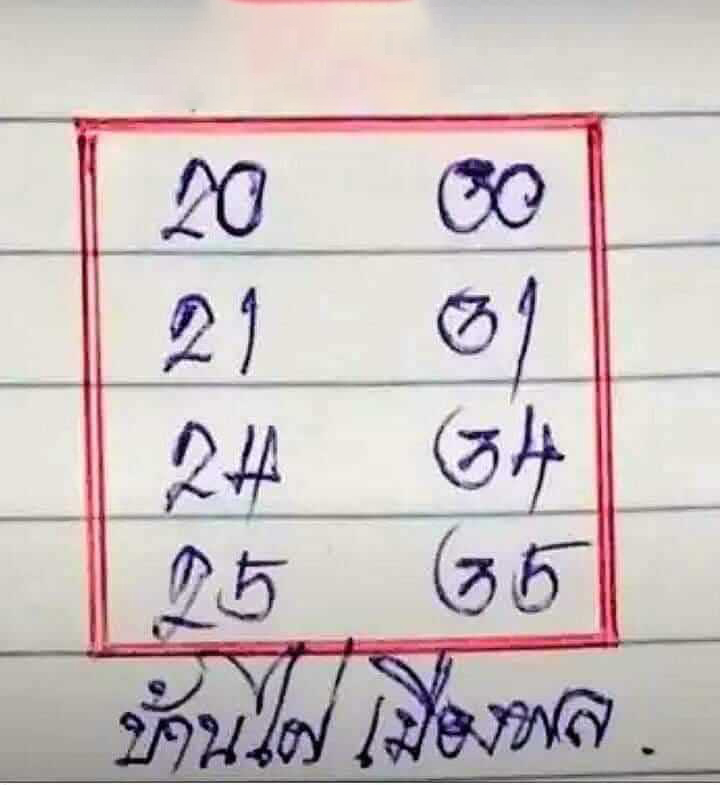 20 30
21 31
24 34
25 35
บ้านไผ่ เมืองพล.